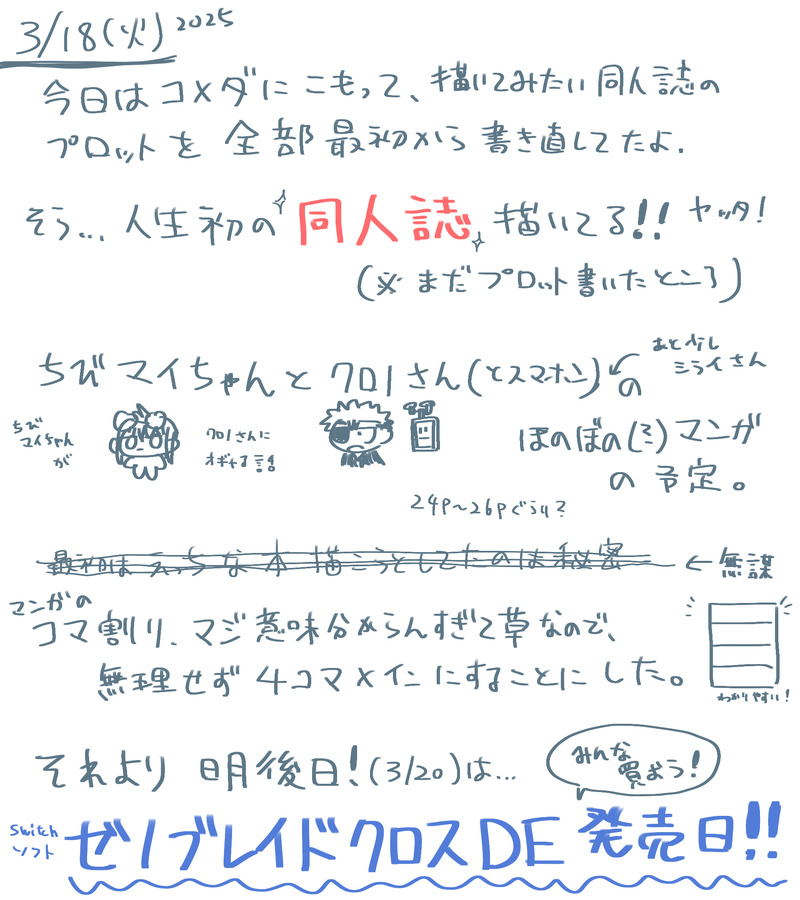 3/18(火) 2025
今日はコメダにこもって、描いてみたい同人誌の
プロットを全部最初から書き直してたよ.
そう... 人生初の同人誌描いてる!! ヤッタ!
(※まだプロット書いたところ)
ちびマイちゃんとクロイさん(とスマホン)の
あと少し
ミライさん
ちび
マイちゃん
が
クロイさんに
オギャる話
ほのぼの(?)マンガ
の予定。
24P~26Pぐらい?
最初はえっちな本描こうとしてたのは秘密
←無謀
マンガの
コマ割り、マジ意味分からんすぎて草なので、
無理せず4コマメインにすることにした。
わかりやすい!
それより明後日!(3/20)は...
みんな
買おう!
Switch
ソフト
ゼノブレイドクロスDE 発売日!!